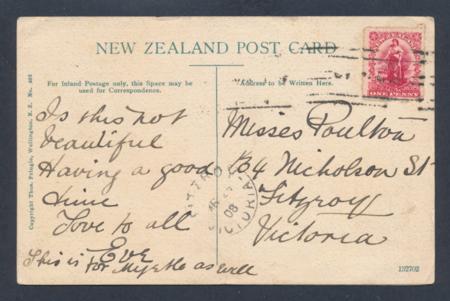 NEW ZEALAND POST CARD
For Inland Postage only, this Space may be
used for Correspondence.
Address to be Written Here.
ONE PENNY
Is this not
beautiful
Having a good
time
Love to all
Eve
This is for Myrtle as well
Misses Poulton
134 Nicholson St
Fitzroy
Victoria
FITZRO
08
TORIA
Copyright Thos. Pringle, Wellington, N. Z. No.